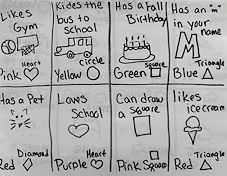 Likes
Gym
Heart
Pink
Rides the
bus to
school
circle
Yellow
Has a Fall
Birthday
square
Green
Has an "m"
in your
name
M
Triangle
Blue
Has a Pet
Diamond
Red
Loves
School
Heart
Purple
Can draw
a square
Pink Square
likes
ice cream
Triangle
Red